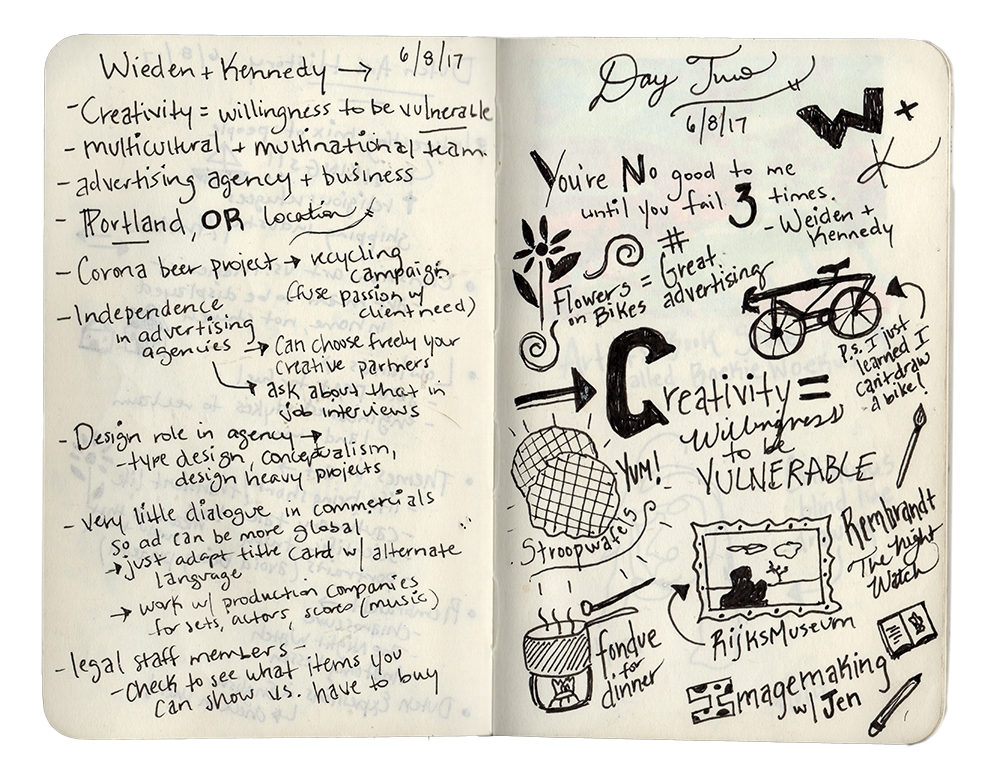 Wieden + Kennedy → 6/8/17
- Creativity = willingness to be vulnerable
- multicultural + multinational team.
- advertising agency + business
- Portland, OR location
- Corona beer project → recycling
campaign
(fuse passion w/
client need)
- Independence
in advertising
agencies → Can choose freely your
creative partners
→ ask about that in
job interviews
- Design role in agency →
- type design, conceptualism,
design heavy projects
- very little dialogue in commercials
so ad can be more global
→ just adapt title card w/ alternate
language
→ work w/ production companies
for sets, actors, scores (music)
- legal staff members -
- check to see what items you
can show vs. have to buy
Day Two
6/8/17
W +
K
You're No good to me
until you fail 3 times.
- Weiden +
Kennedy
#
Flowers = Great
on Bikes advertising
P.S. I just
learned I
can't draw
a bike!
Creativity =
Willingness
to be
VULNERABLE
YUM!
Stroopwafels
Rembrandt
The Night
Watch
RijksMuseum
fondue
for
dinner
Imagemaking
w/ Jen